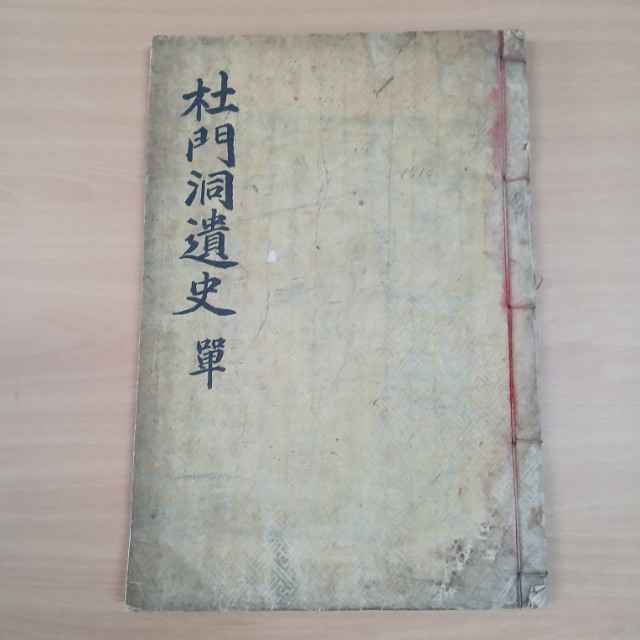 杜門洞遺史 單